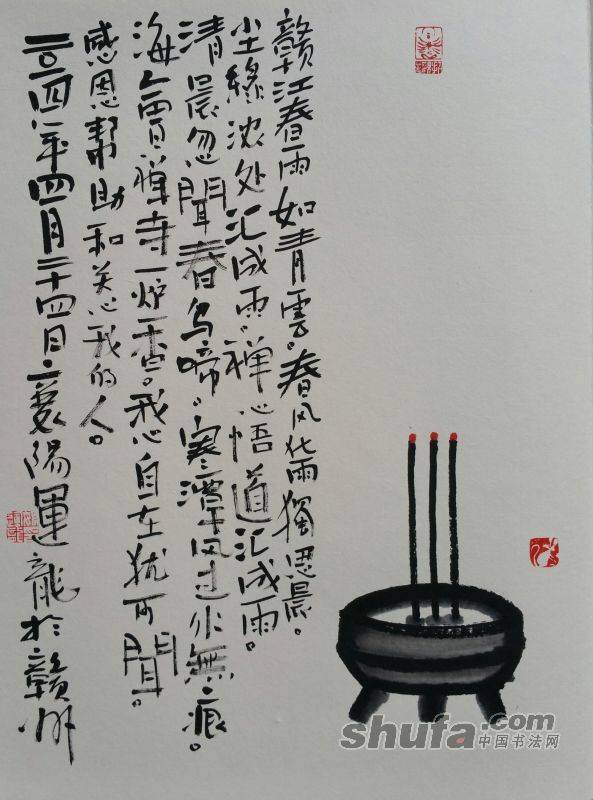 赣江春雨如青雲。春风化雨獨思晨。
尘缘浓处汇成雨。禅心悟道汇成雨。
清晨忽聞春鸟啼。寒潭风过水無痕。
海會禅寺一炉香。我心自在犹可聞。
感恩幫助和关心我的人。
二〇一四年四月二十四日。襄陽運龍於赣州
shufa.com
中国书法网